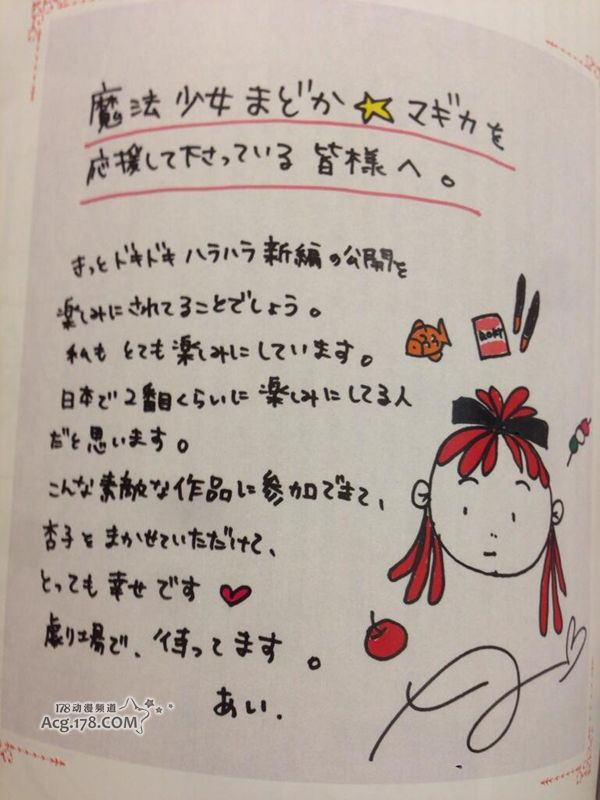 魔法少女まどか☆マギカを
応援して下さっている皆様へ。
きっとドキドキハラハラ新編の公開を
楽しみにされてることでしょう。
私もとても楽しみにしています。
日本で2番目くらいに楽しみにしてる人
だと思います。
こんな素敵な作品に参加できて、
杏子をまかせていただけて、
とっても幸せです♥
劇場で、待ってます。
あい.
ROKY
178动漫频道
Acg.178.COM